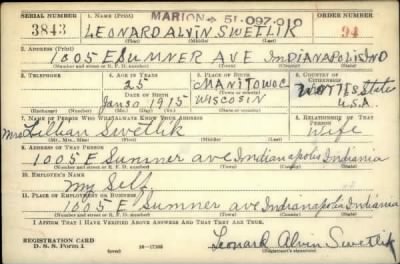 SERIAL NUMBER 1. NAME (Print) MARION 51-097-010 ORDER NUMBER
3843 LEONARD ALVIN SWETLIK 94
(First) (Middle) (Last)
2. ADDRESS (Print)
1005 E SUMNER AVE INDIANAPOLIS IND
(Number and street or R. F. D. number) (Town) (County) (State)
3. TELEPHONE 4. AGE IN YEARS 5. PLACE OF BIRTH 6. COUNTRY OF CITIZENSHIP
25 MANITOWOC
DATE OF BIRTH (Town or county) States
Jan 30 1915 WISCOSIN U.S.A.
(Exchange) (Number) (Mo.) (Day) (Yr.) (State or country)
7. NAME OF PERSON WHO WILL ALWAYS KNOW YOUR ADDRESS 8. RELATIONSHIP OF THAT PERSON
Mrs Lillian Swetlik Wife
(Mr., Mrs., Miss) (First) (Middle) (Last)
9. ADDRESS OF THAT PERSON
1005 E Sumner ave Indianapolis Indiania
(Number and street or R. F. D. number) (Town) (County) (State)
10. EMPLOYER'S NAME
My Self
11. PLACE OF EMPLOYMENT OR BUSINESS
1005 E Sumner ave Indianapolis Indiania
(Number and street or R. F. D. number) (Town) (County) (State)
I AFFIRM THAT I HAVE VERIFIED ABOVE ANSWERS AND THAT THEY ARE TRUE.
REGISTRATION CARD
D. S. S. Form 1 16—17105 Leonard Alvin Swetlik
(Registrant's signature)